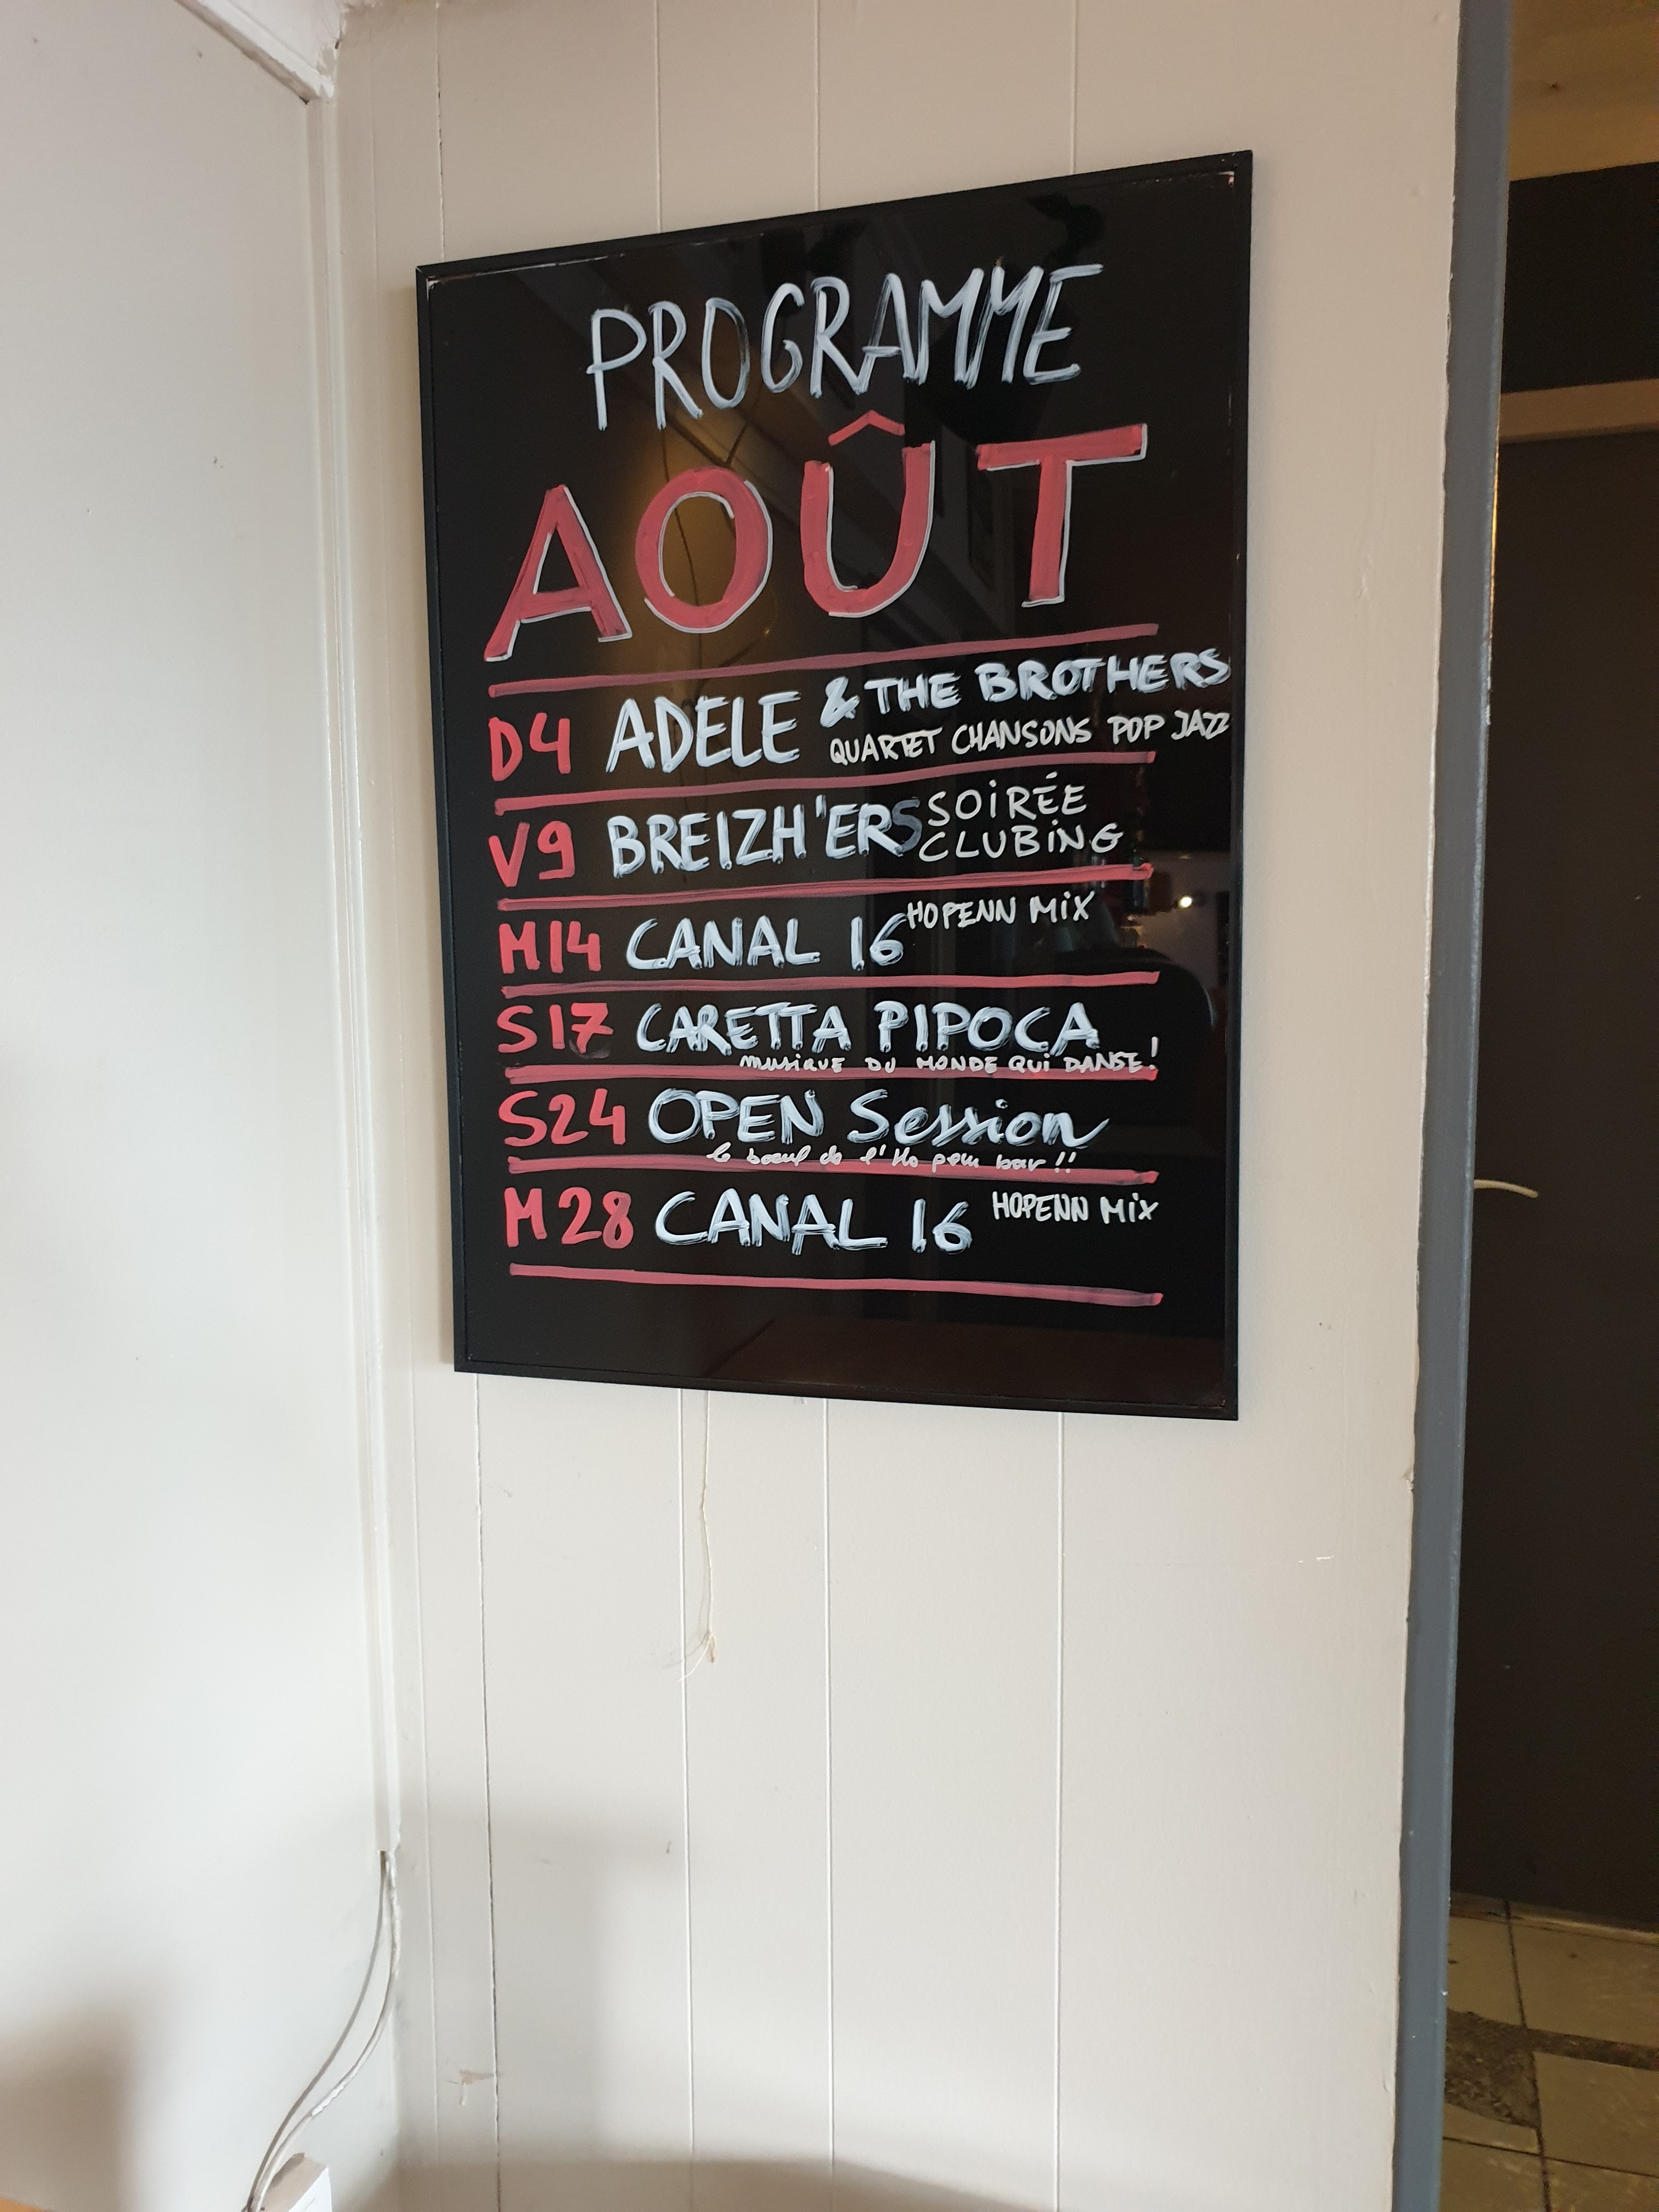 PROGRAMME
AOÛT
D4 ADELE & THE BROTHERS
QUARTET CHANSONS POP JAZZ
V9 BREIZH'ERS SOIRÉE
CLUBING
M14 CANAL 16 HOPENN MIX
S17 CARETTA PIPOCA
MUSIQUE DU MONDE QUI DANSE!
S24 OPEN Session
le boeuf de l'Ho penn bar!!
M28 CANAL 16 HOPENN MIX